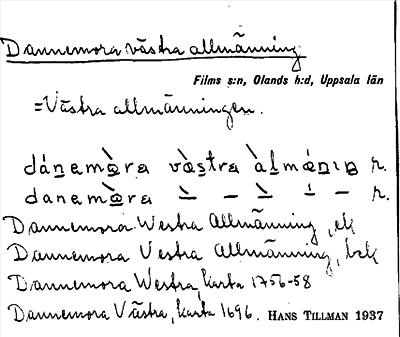 Dannemora västra allmänning
Films s:n, Olands h:d, Uppsala län
=Västra allmänningen.
r.
r.
Dannemora Westra Allmänning, ek
Dannemora Vestra Allmänning, bek
Dannemora Westra, karta 1756-58
Dannemora Västra, karta 1696. HANS TILLMAN 1937